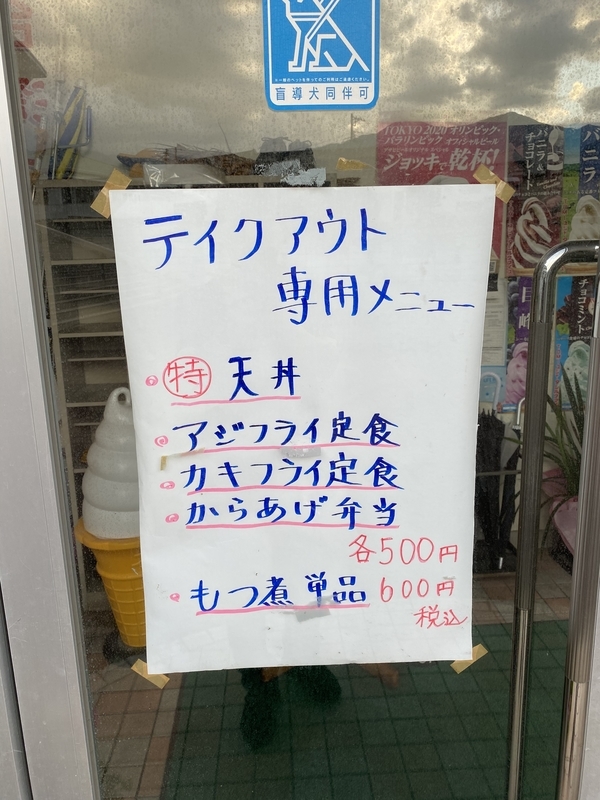 盲導犬同伴可
TOKYO 2020 オリンピック・
パラリンピック オフィシャルビール
ジョッキで乾杯!
バニラ&
チョコレート
バニラ
巨峰
チョコミント
テイクアウト
専用メニュー
特 天丼
アジフライ定食
カキフライ定食
からあげ弁当
各500円
もつ煮単品 600円
税込